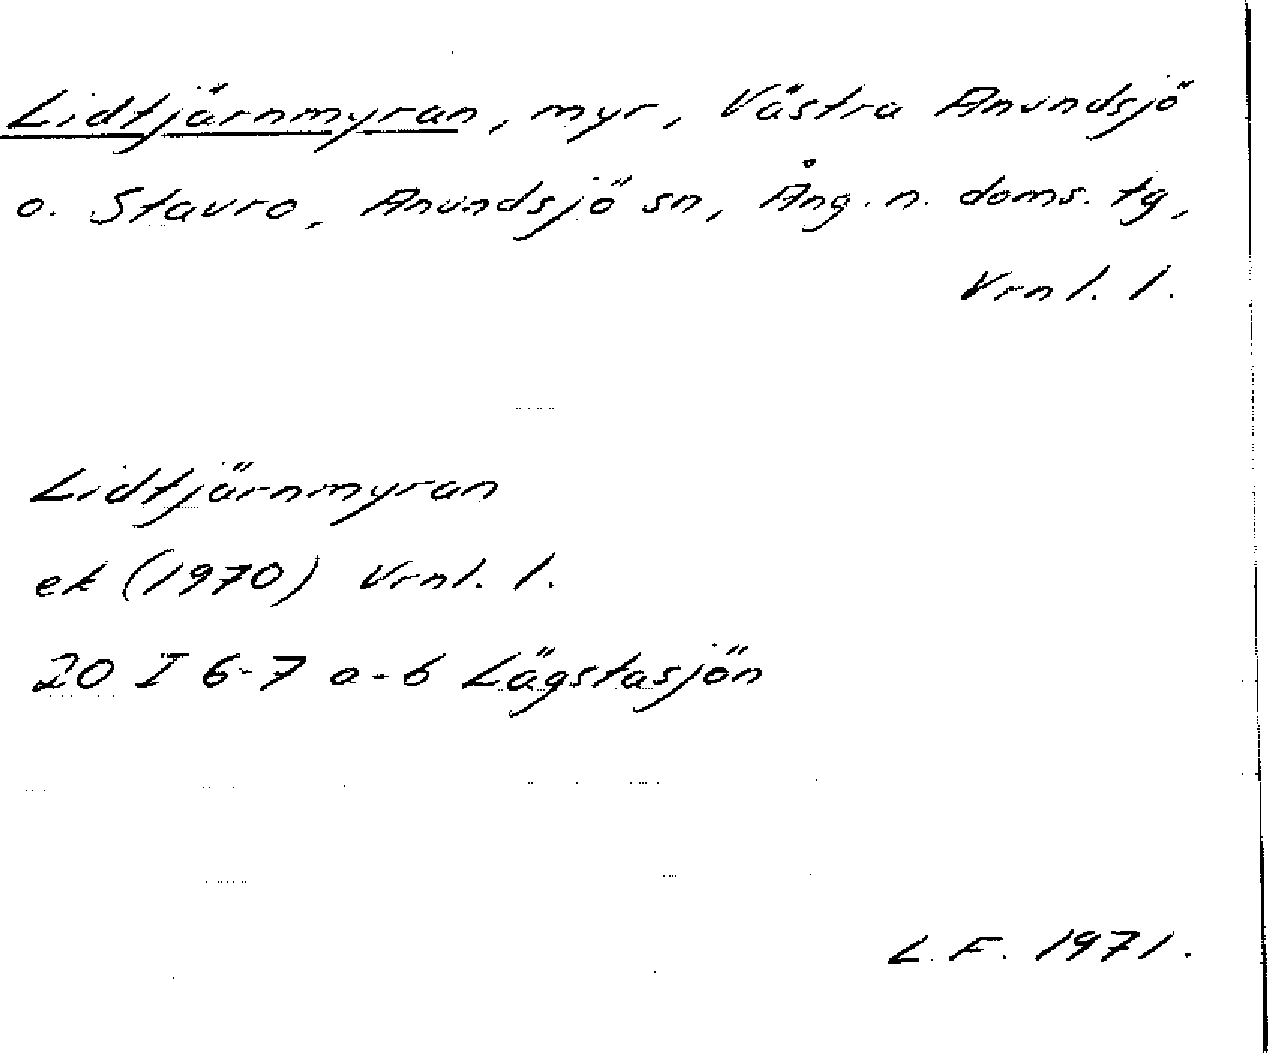 Lidtjärnmyran, myr, Västra Anundsjö
o. Stavro, Anundsjö sn, Ång. n. doms. tg,
Vrnl. l.
Lidtjärnmyran
ek (1970) Vrnl. l.
20 I 6-7 a-b Lägstasjön
L.F. 1971.